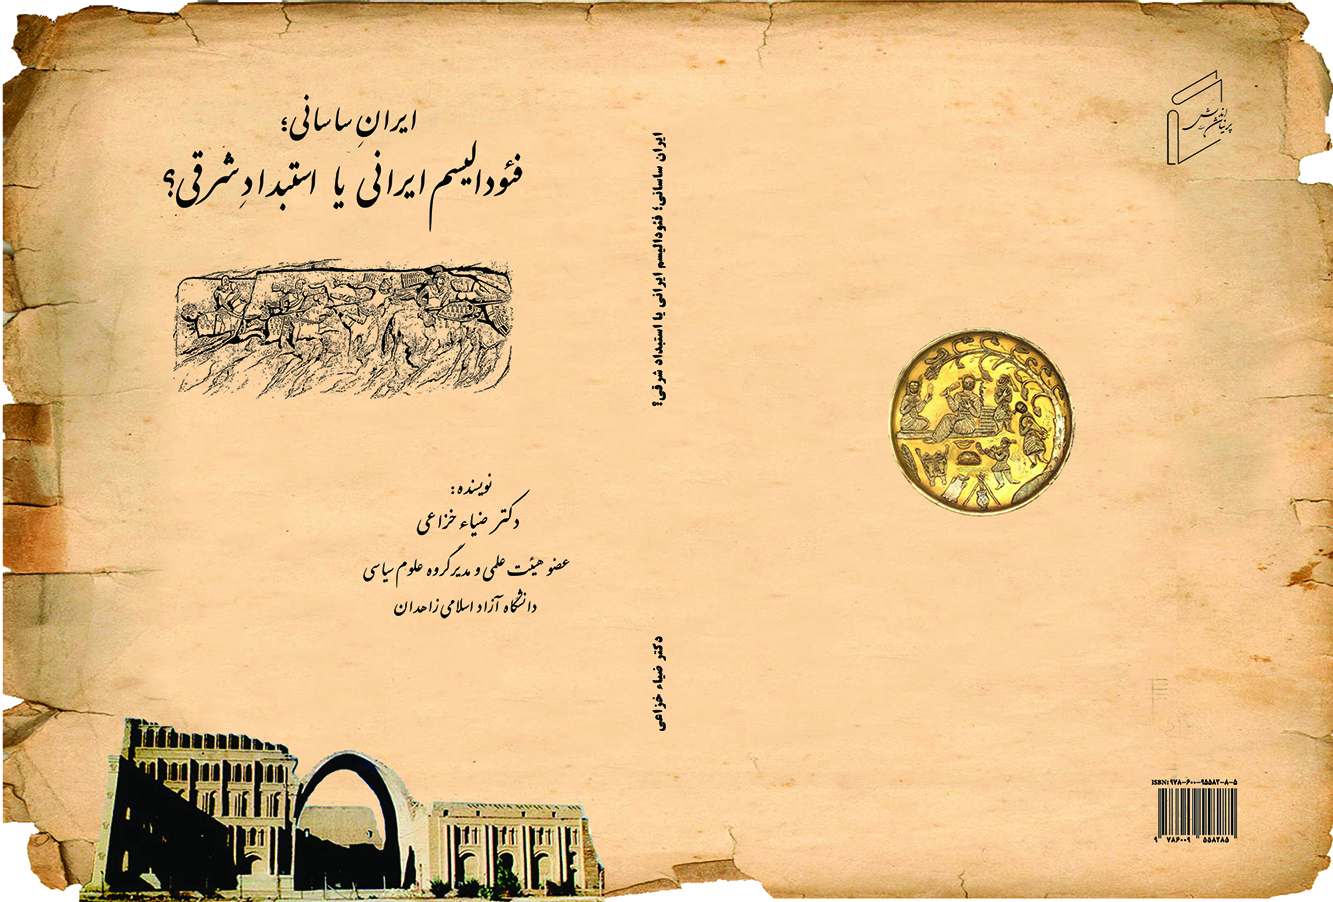 ایرانِ ساسانی؛
فئودالیسم ایرانی یا استبدادِ شرقی؟
نویسنده:
دکتر ضیاء خزاعی
عضو هیئت علمی و مدیر گروه علوم سیاسی
دانشگاه آزاد اسلامی زاهدان
ایران ساسانی؛ فئودالیسم ایرانی یا استبداد شرقی؟
دکتر ضیاء خزاعی
اندیش
پرنیان
ISBN: ۹۷۸-۶۰۰-۹۵۵۸۲-۸-۵
۹ ۷۸۶۰۰۹ ۵۵۸۲۸۵